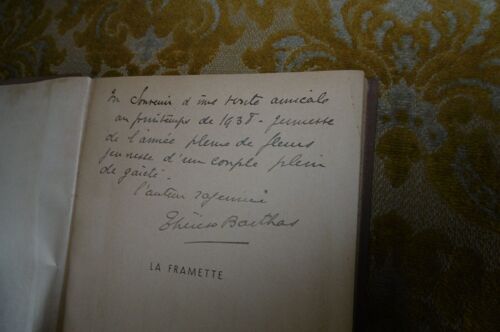 En souvenir d'une visite amicale
au printemps de 1938 - jeunesse
de l'année pleine de fleurs
jeunesse d'un couple plein
de gaîté -
l'auteur rajeunie
Thérèse Barthas
LA FRAMETTE